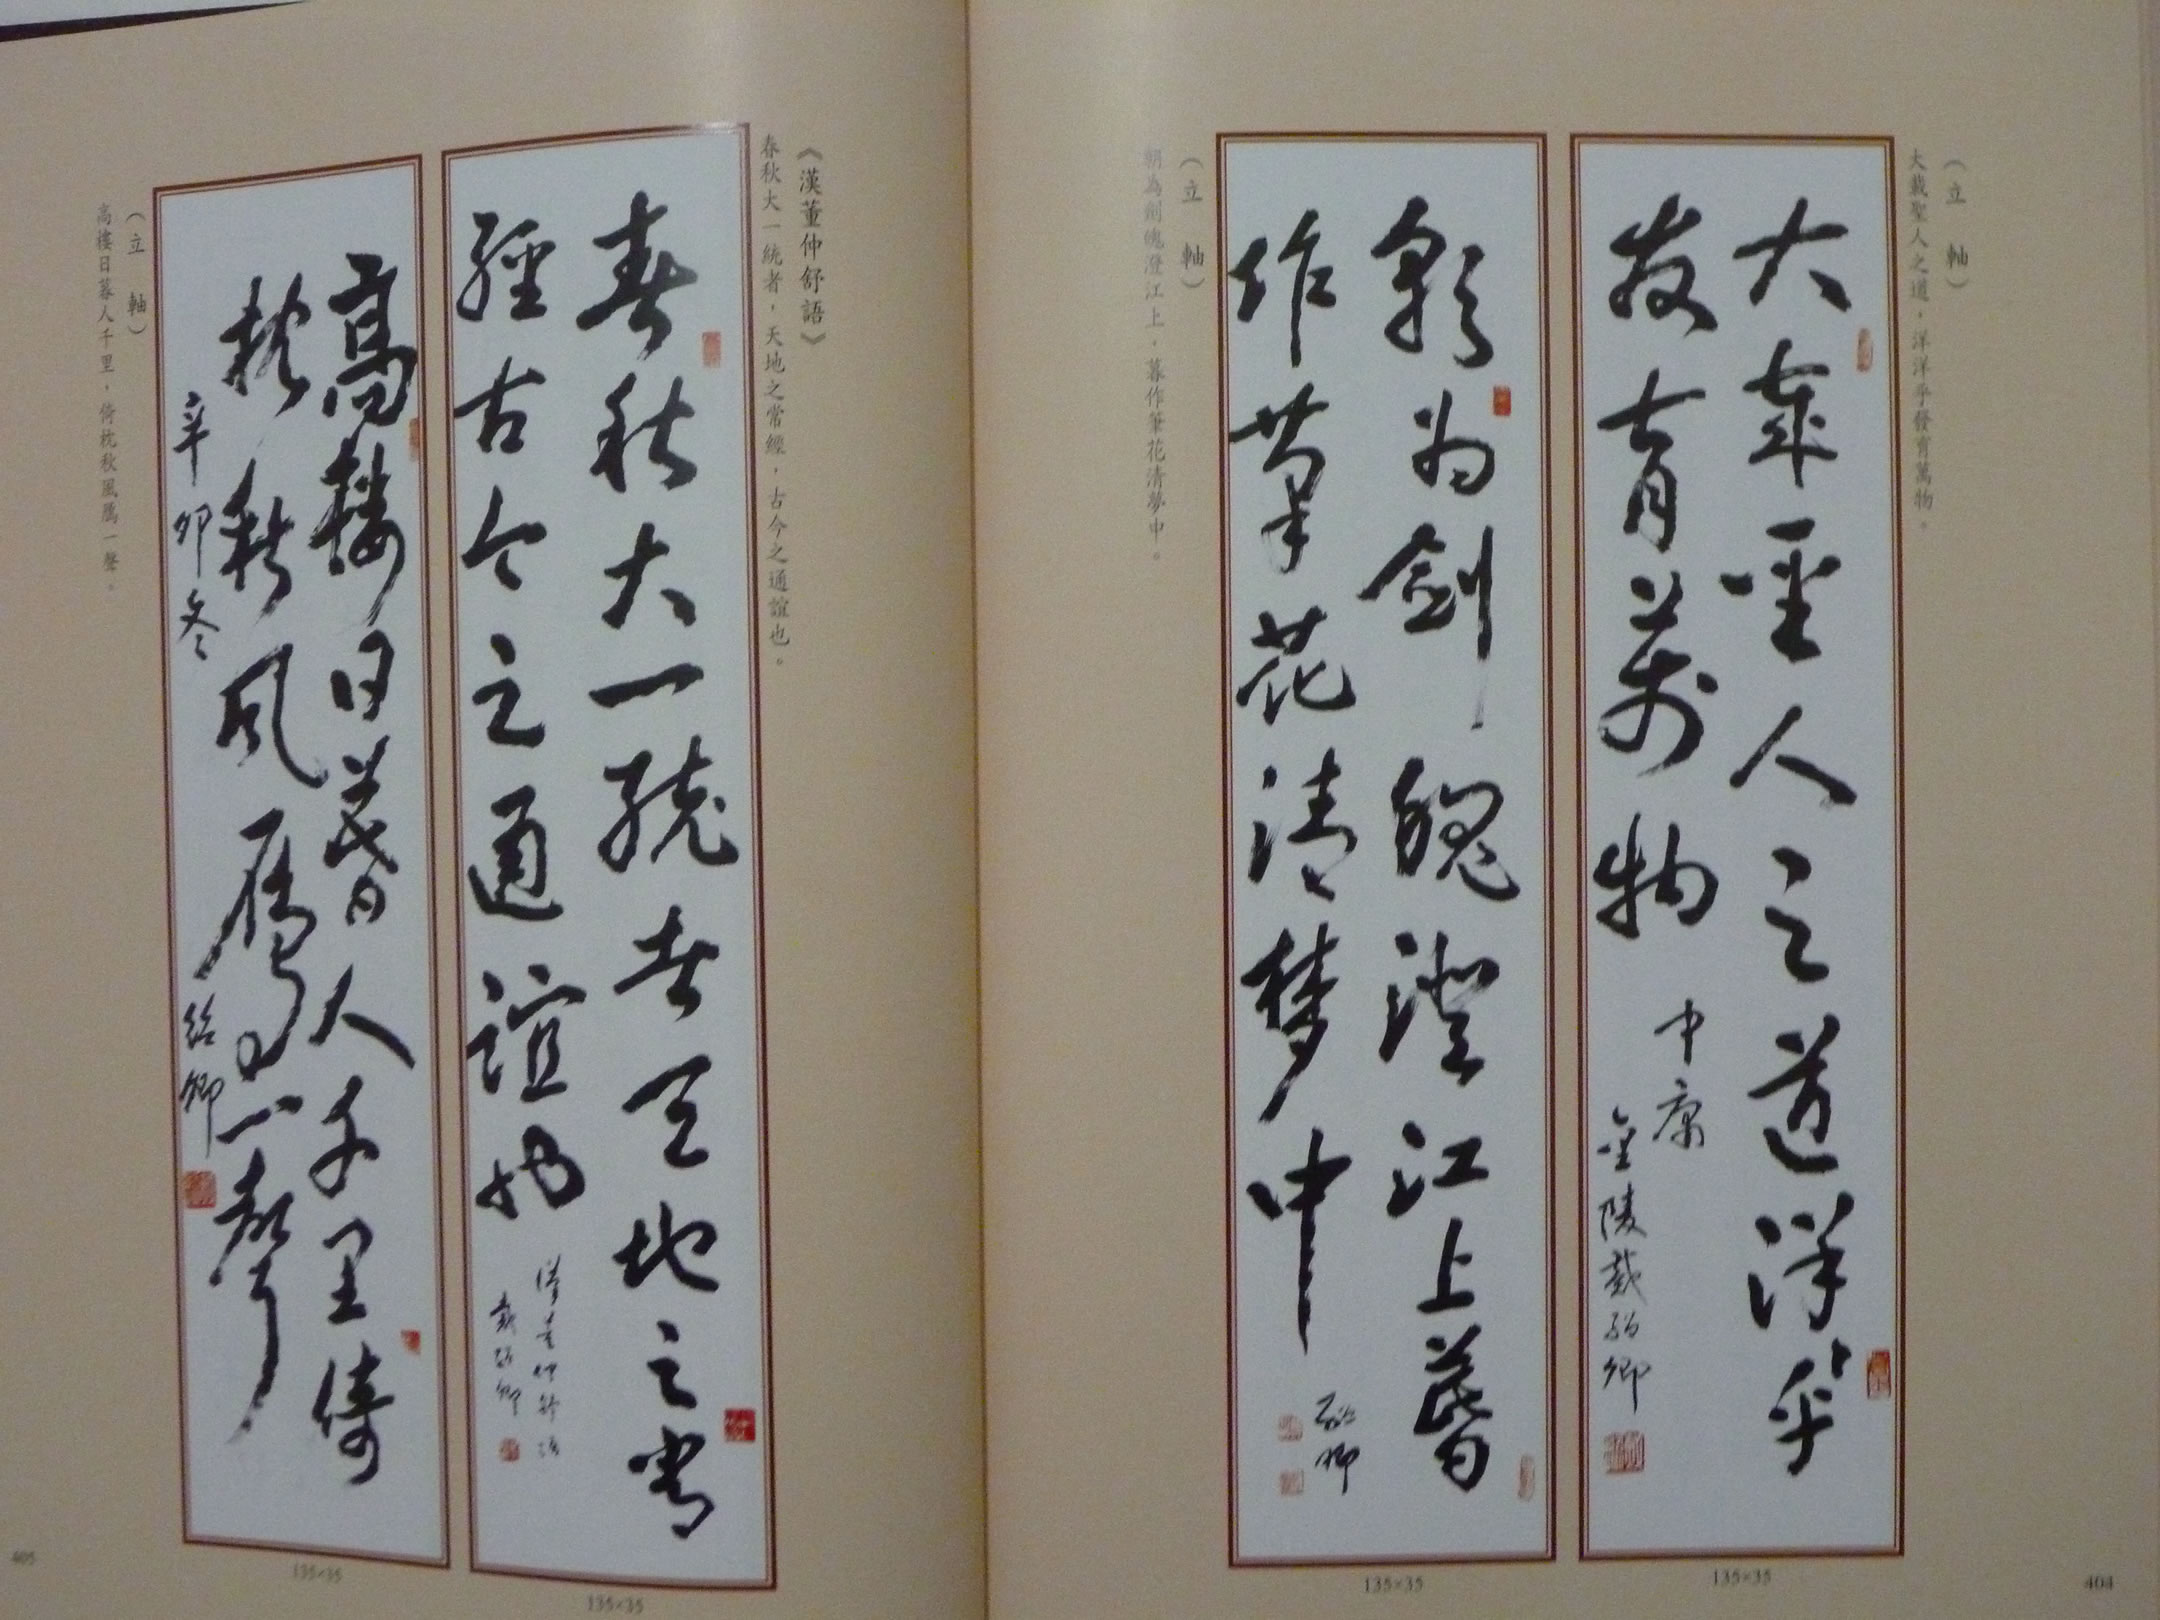 （立軸）
大哉聖人之道，洋洋乎發育萬物。
大哉聖人之道洋洋乎
發育萬物
中庸
金陵戴紹卿
135×35
（立軸）
朝為劍魄澄江上，暮作筆花清夢中。
朝為劍魄澄江上暮
作筆花清夢中
紹卿
135×35
404
《漢董仲舒語》
春秋大一統者，天地之常經，古今之通誼也。
春秋大一統者天地之常
經古今之通誼也
漢董仲舒語
戴紹卿
135×35
高樓日暮人千里倚
枕秋風雁一聲
辛卯冬
紹卿
（立軸）
高樓日暮人千里，倚枕秋風雁一聲。
135×35
405